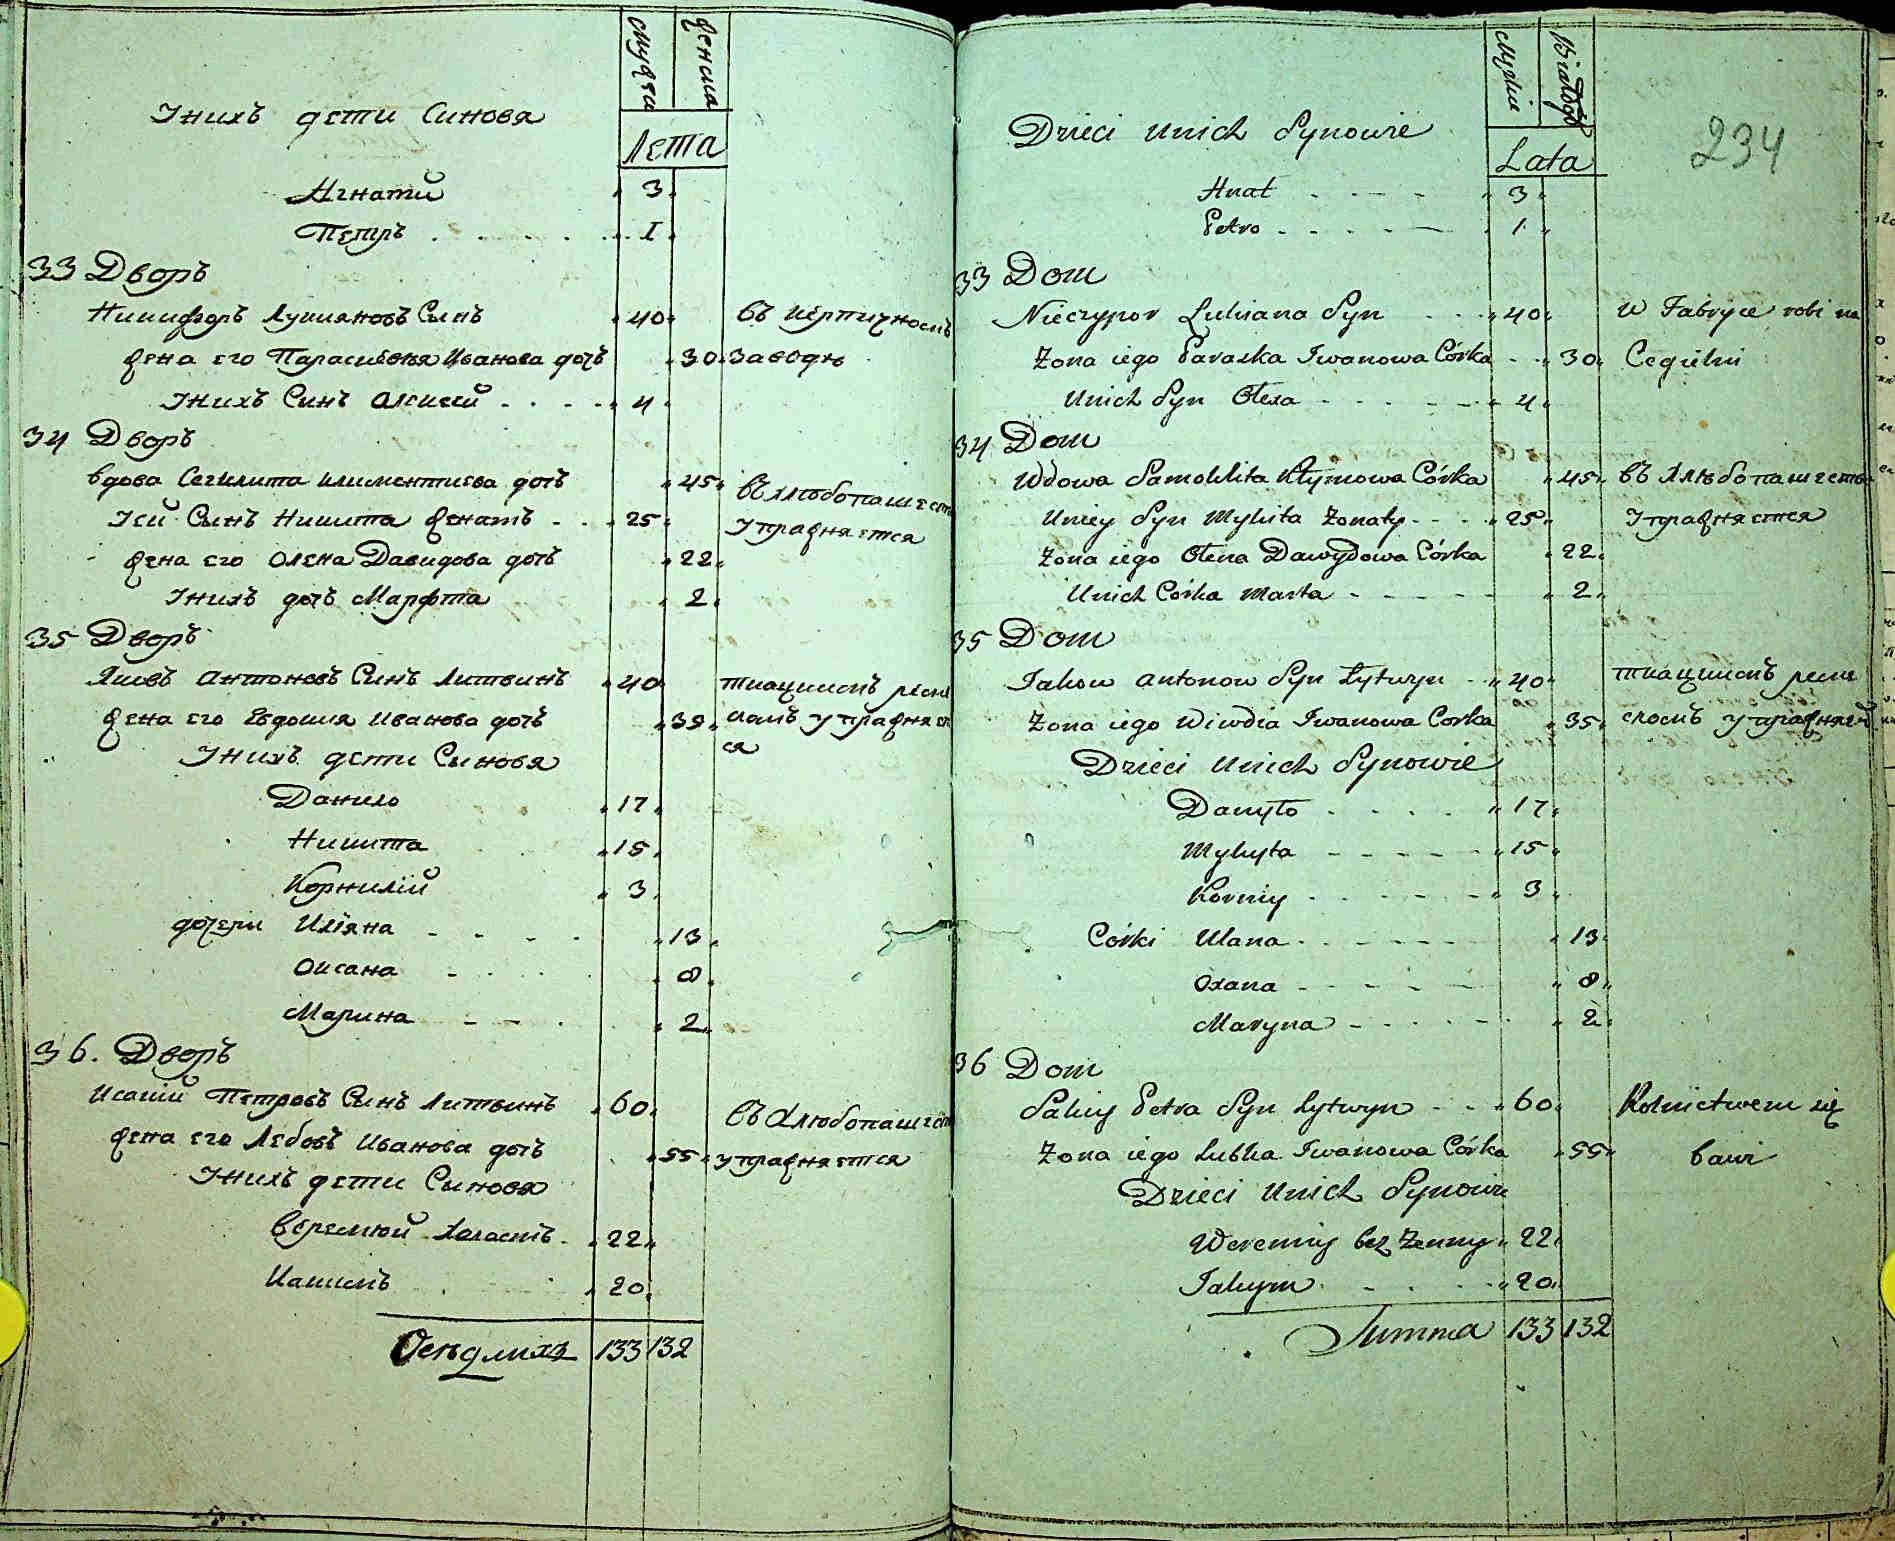 мужеска
женска
Унихъ дети Синовя
Лета
Игнатий 3
Петръ 1
33 Дворъ
Никифоръ Лукияновъ Сынъ 40 въ кѣрпичномъ
жена его Параскевия Иванова дочъ 30 заводѣ
Унихъ Синъ Алексей 4
34 Дворъ
вдова Секлита Климентиева дочъ 45 въ хлѣбопашест
Уей Сынъ Никита женатъ 25 упражняется
жена его Олена Давидова дочъ 22
Унихъ дочъ Марфта 2
35 Дворъ
Яковъ Антоновъ Синъ Литвинъ 40 ткацкимъ реме
жена его Евдокия Иванова дочъ 35 сломъ упражняет
ся
Унихъ дети Сыновя
Данило 17
Никита 15
Корнилий 3
дочери Илияна 13
Оксана 8
Марина 2
36. Дворъ
Исакий Петровъ Сынъ Литвинъ 60 въ хлюбопашест
жена его Лебовъ Иванова дочъ 55 упражняется
Унихъ дети Сыновя
Веремѣй холостъ 22
Иакимъ 20
133 132
Męzkie
234
Dzieci Unich Synowie
Lata
Hnat 3
Petro 1
33 Dom
Nieczypor Lukiana Syn 40 w Fabryce robi na
Żona iego Paraska Iwanowa Córka 30 Cegielni
Unich Syn Olexa 4
34 Dom
Wdowa Samoklita Kłymowa Córka 45 въ хлѣбопашество
Uniey Syn Mykita Żonaty 25 упражняется
Żona iego Olena Dawydowa Córka 22
Unich Córka Marta 2
35 Dom
Jakow Antonow Syn Łytwyn 40 ткацкимъ реме
Żona iego Wiwdia Iwanowa Corka 35 сломъ упражняе
Dzieci Unich Synowie
Danyło 17
Mykyta 15
Korniy 3
Córki Ulana 13
Oxana 8
Maryna 2
36 Dom
Sakiy Petra Syn Lytwyn 60 Rolnictwem się
Żona iego Lubka Iwanowa Córka 55 bawi
Dzieci Unich Synowie
Weremiy bez Żenny 22
Jakym 20
Summa 133 132